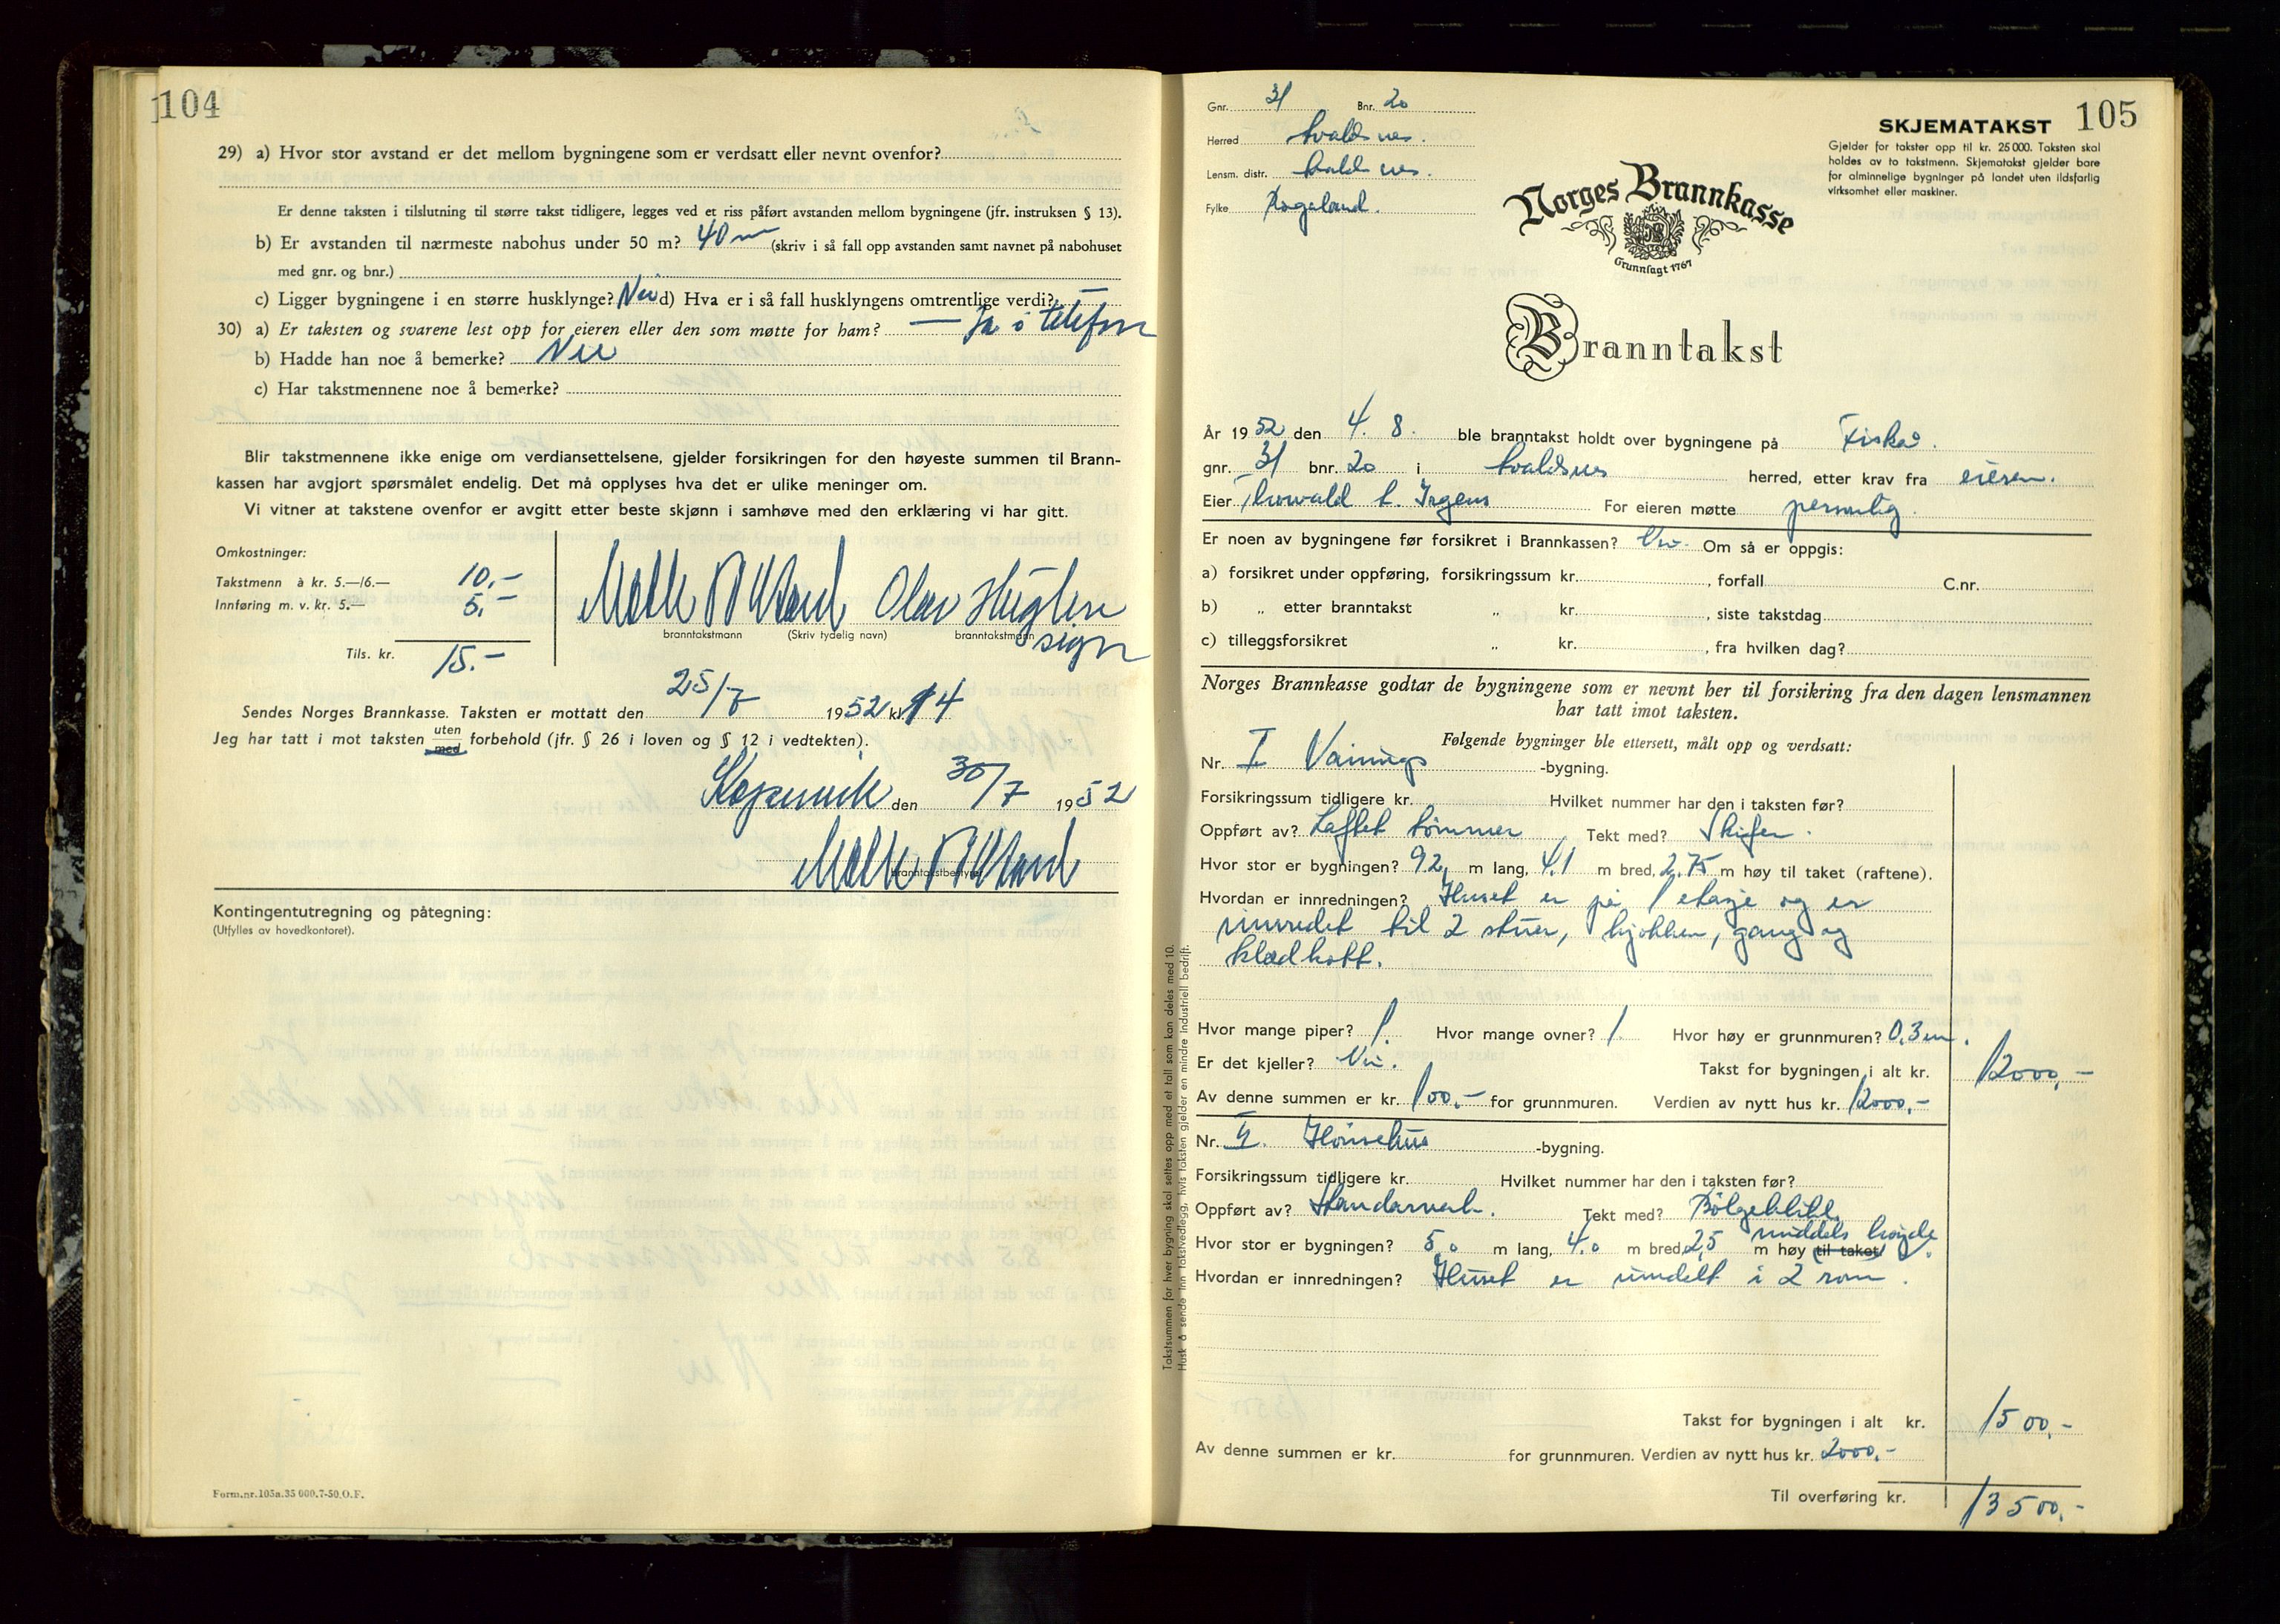 104
29) a) Hvor stor avstand er det mellom bygningene som er verdsatt eller nevnt ovenfor?
Er denne taksten i tilslutning til større takst tidligere, legges ved et riss påført avstanden mellom bygningene (jfr. instruksen § 13).
b) Er avstanden til nærmeste nabohus under 50 m? 40 m (skriv i så fall opp avstanden samt navnet på nabohuset
med gnr. og bnr.)
c) Ligger bygningene i en større husklynge? Nei d) Hva er i så fall husklyngens omtrentlige verdi? —
30) a) Er taksten og svarene lest opp for eieren eller den som møtte for ham? — Ja i telefon
b) Hadde han noe å bemerke? Nei
c) Har takstmennene noe å bemerke?
Blir takstmennene ikke enige om verdiansettelsene, gjelder forsikringen for den høyeste summen til Brann-
kassen har avgjort spørsmålet endelig. Det må opplyses hva det er ulike meninger om.
Vi vitner at takstene ovenfor er avgitt etter beste skjønn i samhøve med den erklæring vi har gitt.
Omkostninger:
Takstmenn à kr. 5.—/6.— 10.-
Innføring m. v. kr. 5.— 5.-
Tils. kr. 15.-
Olav
sign
branntakstmann (Skriv tydelig navn) branntakstmann
Sendes Norges Brannkasse. Taksten er mottatt den 25/7 1952 kl. 14
Jeg har tatt i mot taksten uten med forbehold (jfr. § 26 i loven og § 12 i vedtekten).
Kopervik den 30/7 1952
branntakstbestyrer
Kontingentutregning og påtegning:
(Utfylles av hovedkontoret).
Form.nr.105a.35 000.7-50.O.F.
105
Gnr. 31 Bnr. 20
Herred Avaldsnes.
Lensm. distr. Avaldsnes.
Fylke Rogaland.
SKJEMATAKST
Gjelder for takster opp til kr. 25 000. Taksten skal
holdes av to takstmenn. Skjematakst gjelder bare
for alminnelige bygninger på landet uten ildsfarlig
virksomhet eller maskiner.
Norges Brannkasse
Grunnlagt 1767
Branntakst
År 1952 den 4. 8. ble branntakst holdt over bygningene på Fiskå.
gnr. 31 bnr. 20 i Avaldsnes herred, etter krav fra eieren.
Eier Thorvald L. Irgens For eieren møtte personlig
Er noen av bygningene før forsikret i Brannkassen? Nei. Om så er oppgis:
a) forsikret under oppføring, forsikringssum kr. , forfall C.nr.
b) „ etter branntakst „ kr. , siste takstdag
c) tilleggsforsikret „ kr. , fra hvilken dag?
Norges Brannkasse godtar de bygningene som er nevnt her til forsikring fra den dagen lensmannen
har tatt imot taksten.
Følgende bygninger ble ettersett, målt opp og verdsatt:
Nr. I Vånings -bygning.
Forsikringssum tidligere kr. Hvilket nummer har den i taksten før?
Oppført av? Laftet tømmer Tekt med? Skifer.
Hvor stor er bygningen? 9.2 m lang, 4.1 m bred, 2.75 m høy til taket (raftene).
Hvordan er innredningen? Huset er på 1 etasje og er
innredet til 2 stuer, kjøkken, gang og
klædkott.
Hvor mange piper? 1. Hvor mange ovner? 1 Hvor høy er grunnmuren? 0.3 m.
Er det kjeller? Nei. Takst for bygningen i alt kr. 12000,-
Av denne summen er kr. 100.- for grunnmuren. Verdien av nytt hus kr. 12000.-
Nr. II. Hønsehus -bygning.
Forsikringssum tidligere kr. Hvilket nummer har den i taksten før?
Oppført av? Standarverk. Tekt med? Bølgeblikk.
middels høyde
Hvor stor er bygningen? 5.0 m lang, 4.0 m bred, 2,5 m høy til taket
Hvordan er innredningen? Huset er inndelt i 2 rom.
Takst for bygningen i alt kr. 1500.-
Av denne summen er kr. for grunnmuren. Verdien av nytt hus kr. 2000.-
Til overføring kr. 13500,-
Takstsummen for hver bygning skal settes opp med et tall som kan deles med 10.
Husk å sende inn takstvedlegg, hvis taksten gjelder en mindre industriell bedrift.